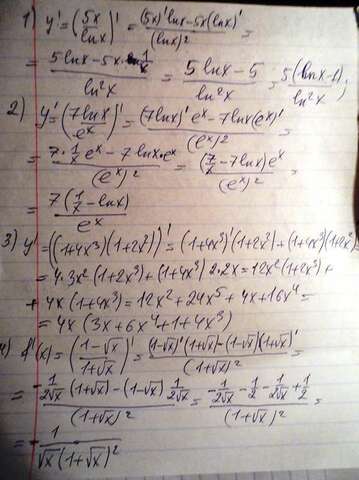 1) y' = (5x/lnx)' = ((5x)' lnx - 5x(lnx)')/(lnx)² =
= (5lnx - 5x · 1/x)/ln²x = (5lnx - 5)/ln²x = 5(lnx - 1)/ln²x ;
2) y' = (7lnx/eˣ)' = ((7lnx)' eˣ - 7lnx(eˣ)')/(eˣ)² =
= (7 · 1/x eˣ - 7lnx · eˣ)/(eˣ)² = (7/x - 7lnx)eˣ/(eˣ)² =
= 7(1/x - lnx)/eˣ
3) y' = ((1+4x³)(1+2x²))' = (1+4x³)'(1+2x²) + (1+4x³)(1+2x²)' =
= 4·3x²(1+2x³) + (1+4x³) 2·2x = 12x²(1+2x³) +
+ 4x(1+4x³) = 12x² + 24x⁵ + 4x + 16x⁴ =
= 4x (3x + 6x⁴ + 1 + 4x³)
4) f'(x) = ((1-√x)/(1+√x))' = ((1-√x)'(1+√x) - (1-√x)(1+√x)')/(1+√x)² =
= (-1/2√x (1+√x) - (1-√x) 1/2√x)/(1+√x)² = (-1/2√x - 1/2 - 1/2√x + 1/2)/(1+√x)² =
= - 1/√x(1+√x)²